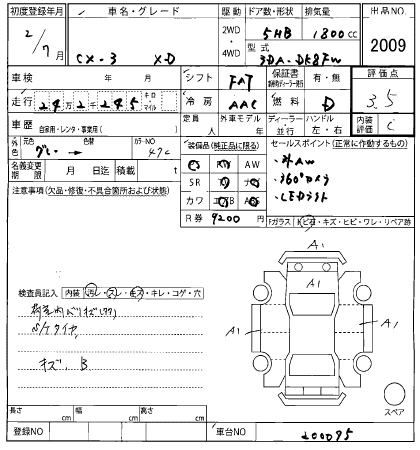 初度登録年月 車名・グレード 駆動 ドア数・形状 排気量 出品NO.
2/7 CX-3 XD 2WD ・ 4WD 5HB 1800cc 2009
型式 3DA-DK8FW
車検 年 月 シフト FAT 保証書 有・無 評価点 3.5
走行 24万2千245 キロ・マイル 冷房 AAC 燃料 D 内装評価 C
車歴 自家用・レンタ・事業用( ) 定員 人 外車モデル ディーラー・並行 ハンドル 左・右
外色 元色 グレー → 色替 カラーNO 47C
装備品(純正品に限る) セールスポイント(正常に作動するもの)
名義変更期限 月 日迄 積載 t
AW
SR
カワ
・外AW
・360°カメラ
・LEDライト
注意事項(欠品・修復・不具合箇所および状態)
R券 9200円
Fガラス トビ石・キズ・ヒビ・ワレ・リペア跡
A1
A1
A1
A1
検査員記入 内装 汚レ・スレ・キズ・キレ・コゲ・穴
S/Kタイヤ
キズ、B
スペア
長さ cm 幅 cm 高さ cm
登録NO 車台NO 200095